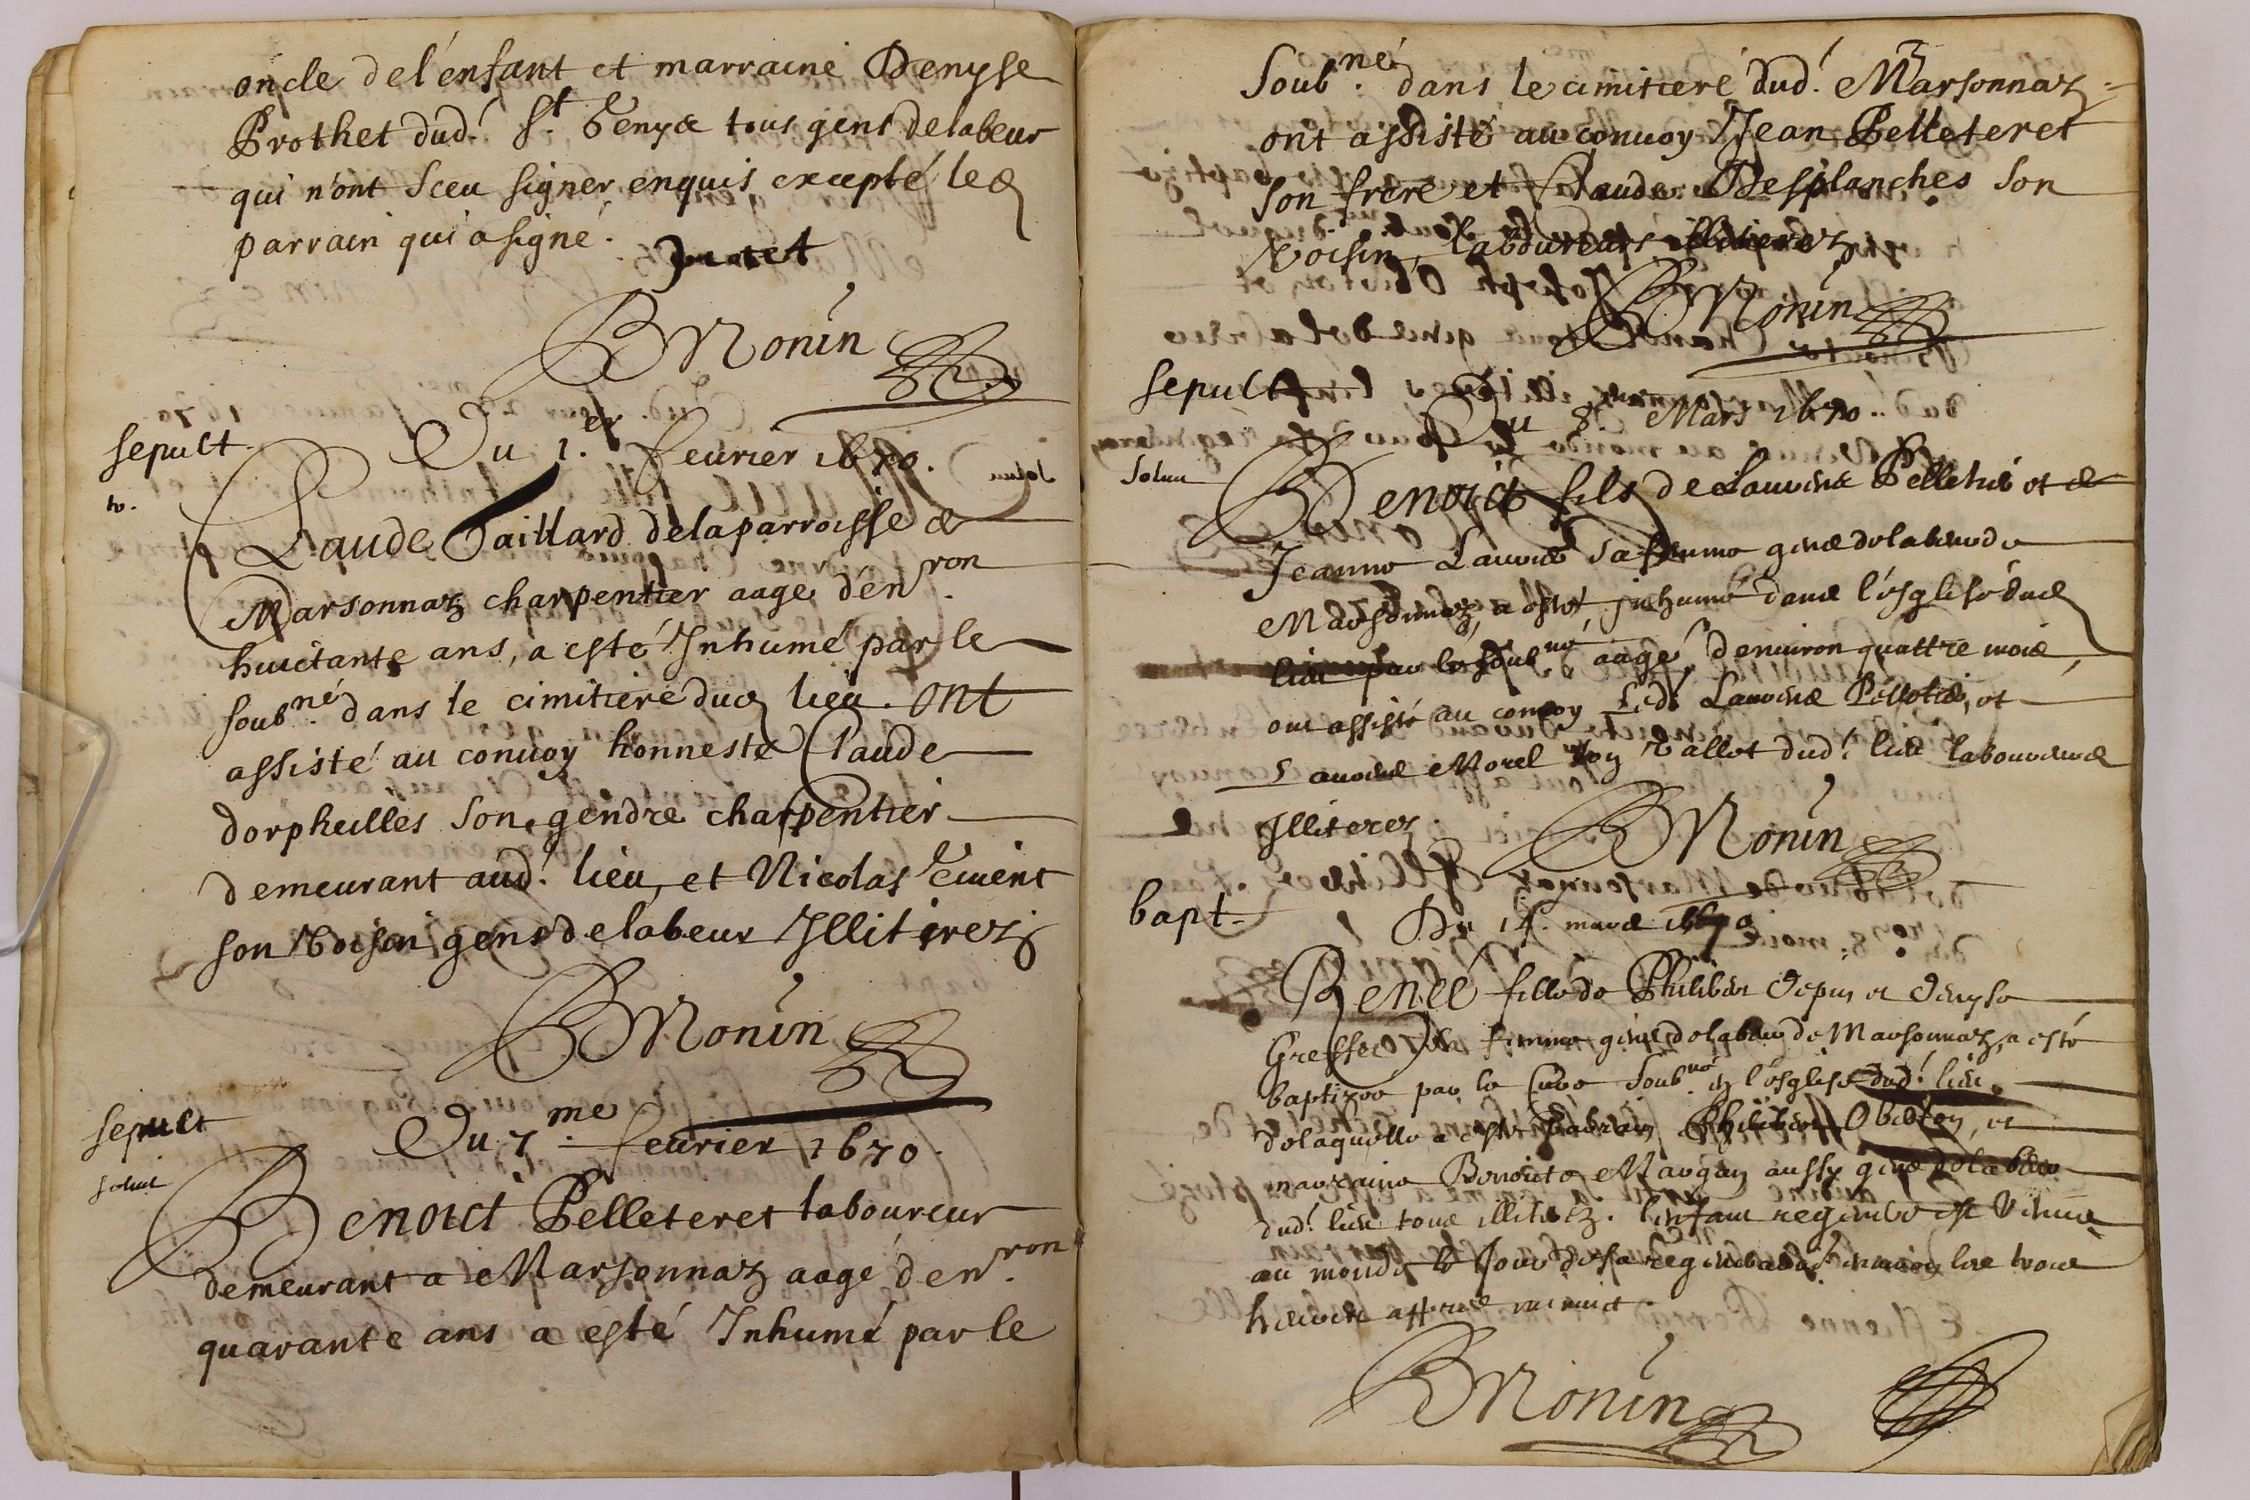 oncle de l'enfant et marraine Denyse
Prothet dud. St. Denys tous gens de labeur
qui n'ont sceu signer enquis excepté le
parrain qui a signé.
BMonin
sepult
Du 1.er feurier 1670.
Claude Gaillard de la parroisse de
Marsonnaz charpentier aage d'en.ron
huictante ans, a esté Inhumé par le
soub.né dans le cimitiere dud lieu. ont
assisté au conuoy honneste Claude
dorpheilles son gendre charpentier
demeurant aud. lieu, et Nicolas
son Voisin gens de labeur Illiterez
BMonin
sepult
solui
Du 7.me feurier 1670.
Benoict Pelleteret laboureur
demeurant a Marsonnaz aagé d'en.ron
quarante ans a esté Inhumé par le
Soub.né dans le cimitiere dud. Marsonnaz
ont assisté au conuoy Jean Pelleteret
son frere et Claude Desplanches son
Voisin, laboureurs illiterez
BMonin
sepult
Du 8. Mars 1670.
solui
Benoict fils de Laurens et
Jeanne sa femme gens de labeur de
Marsonnaz, a esté inhumé dans l'esglise dud
lieu par le soub.né aagé d'enuiron quattre mois
ont assisté au conuoy Led. Laurens et
Morel son Vallet dud. lieu laboureurs
Illiterez.
BMonin
bapt.
Du 14. mars 1670
Renée fille de Philibert Depin et Denyse
sa femme gens de labeur de Marsonnaz, a esté
baptizee par le Curé Soub.né en l'esglise dud. lieu
de laquelle a esté Parrain Philibert et
marraine Benoicte Mangin aussy gens de labeur
dud. lieu tous illiterez. l'enfant est Venue
au monde le Jour de sa enuiron les trois
heures apres minuict.
BMonin